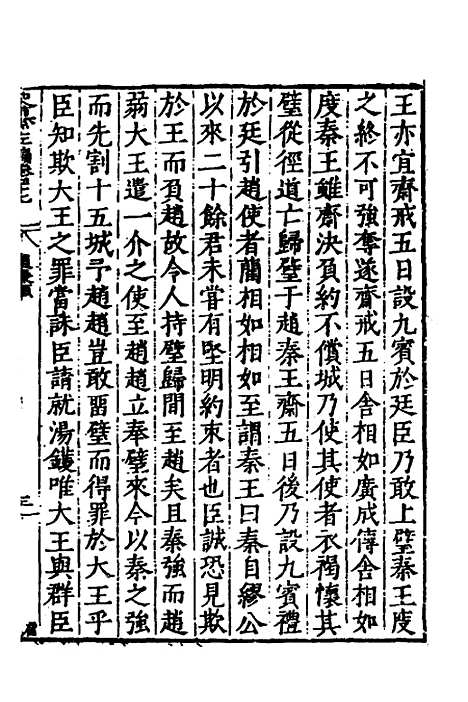 王亦宜齋戒五日設九賓於廷臣乃敢上璧秦王度
之終不可強奪遂齋戒五日舍相如廣成傳舍相如
度秦王雖齋決負約不償城乃使其使者衣褐懷其
璧從徑道亡歸璧于趙秦王齋五日後乃設九賓禮
於廷引趙使者藺相如相如至謂秦王曰秦自繆公
以來二十餘君未嘗有堅明約束者也臣誠恐見欺
於王而負趙故令人持璧歸間至趙矣且秦強而趙
弱大王遣一介之使至趙趙立奉璧來今以秦之強
而先割十五城予趙趙豈敢畱璧而得罪於大王乎
臣知欺大王之罪當誅臣請就湯鑊唯大王與群臣